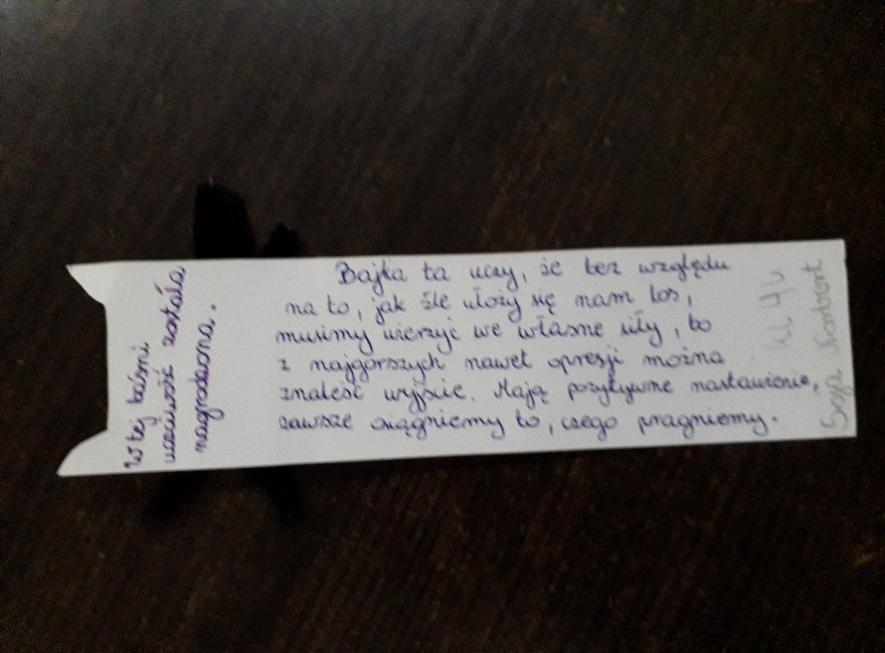 W tej baśni
uczciwość została
nagrodzona.
Bajka ta uczy, że bez względu
na to, jak źle ułoży się nam los,
musimy wierzyć we własne siły, bo
z najgorszych nawet opresji można
znaleść wyjście. Mają pozytywne nastawienie,
zawsze osiągniemy to, czego pragniemy.
kl 4
Norbert